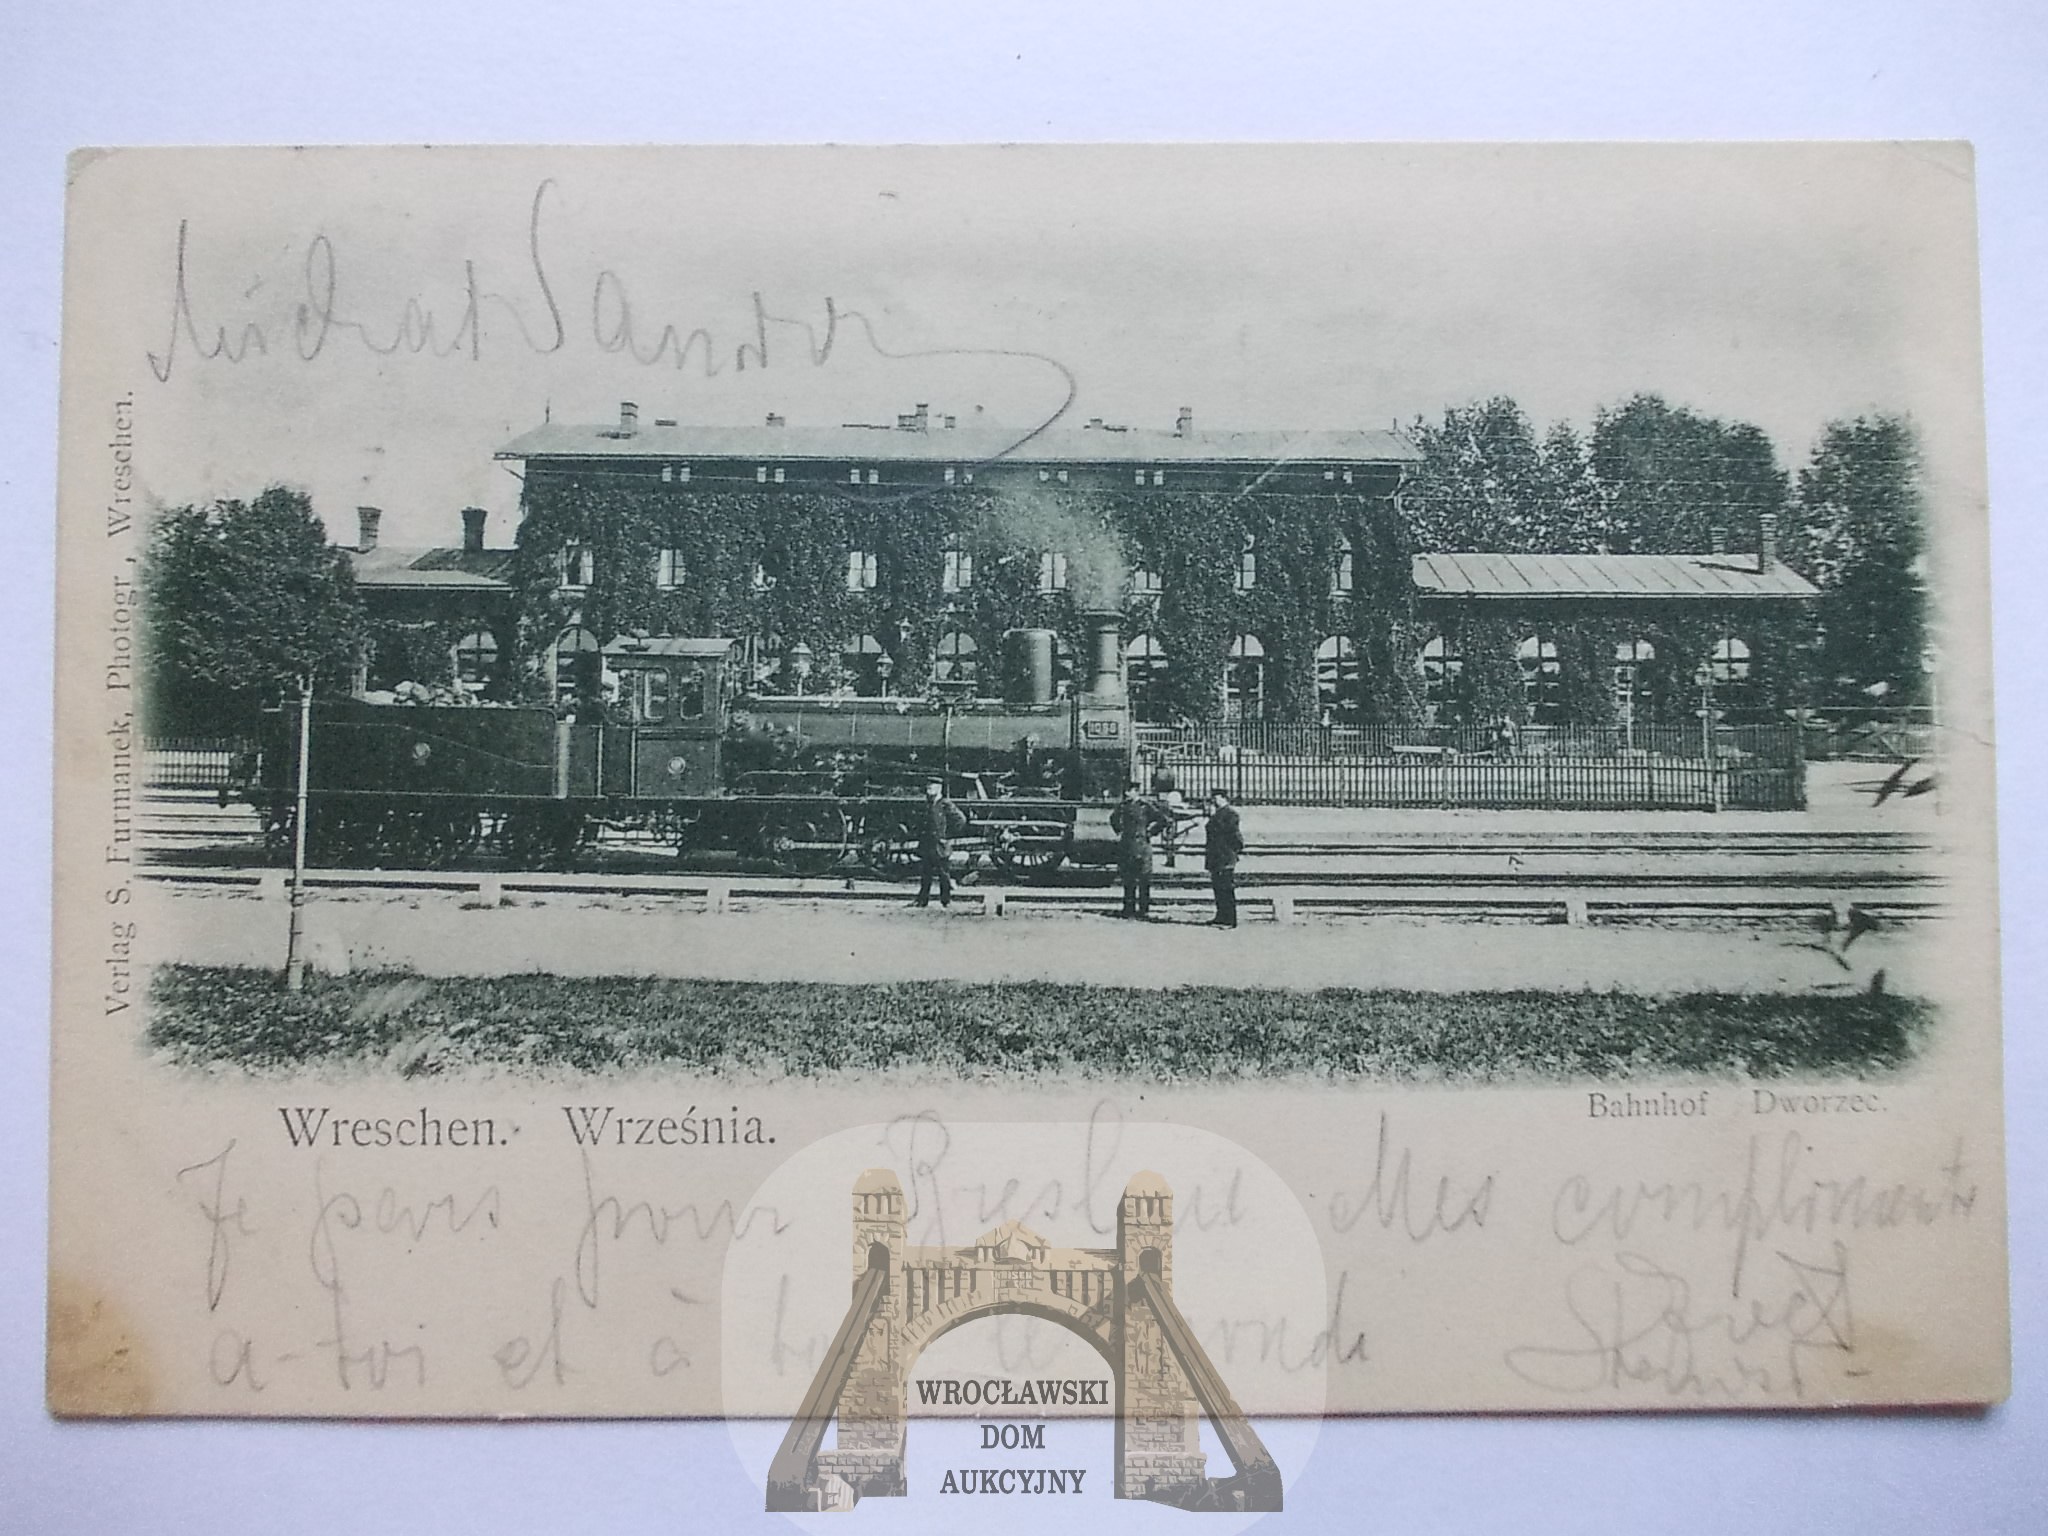 Verlag S. Furmanek, Photogr, Wreschen.
1088
Wreschen. Września.
Bahnhof Dworzec.
Je pars pour Breslau Mes compliments
a-toi et à tout le monde
WROCŁAWSKI
DOM
AUKCYJNY